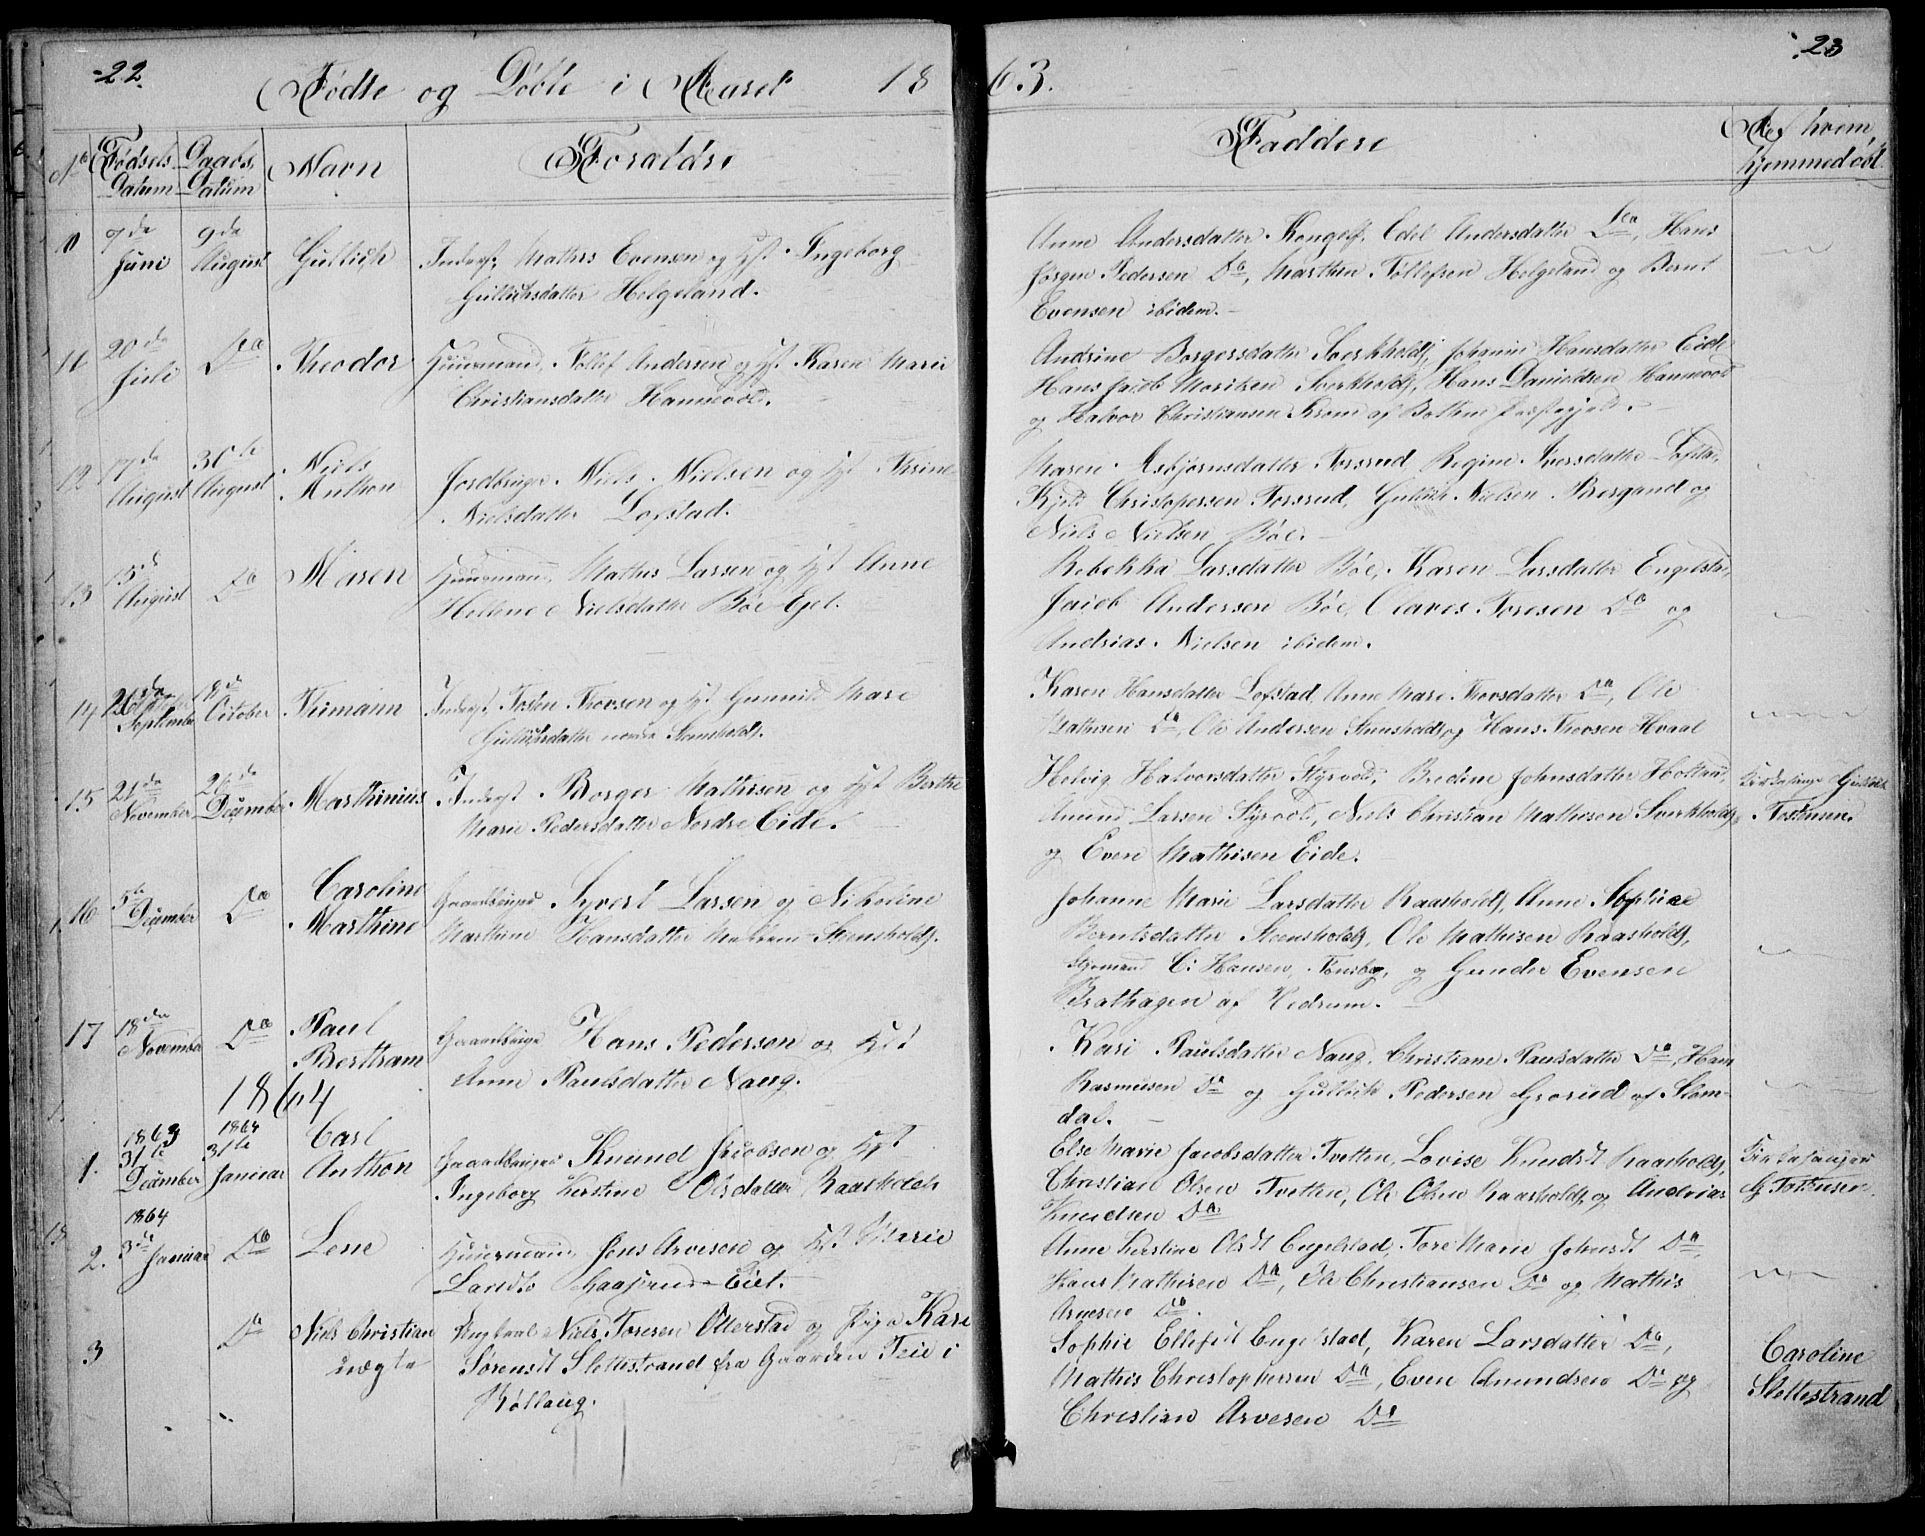 22.
Fødte og Døbte i Aaret 18
63.
23
No Fødsels Datum Daabs Datum Navn Forældre
Faddere
Af hvem hjemmedøbt
10 7da Juni 9da August Gullich Inderst, Mathis Evensen og Hst. Ingeborg
Gullichsdatter Helgeland.
Anne Andersdatter Edel Andersdatter Do, Hans
Jørgen Pedersen Do, Marthin Tollefsen Helgeland og Bernt
Evensen ibidem.
11 20da Juli Do Theodor Huusmand, Tollef Andersen og Hst. Karen Marie
Christiansdatter Hannevold.
Andrine Borgersdatter Sverkholdt, Johanne Hansdatter Eide
Hans Jacob Sverkholdt, Hans Danielsen Hannevold
og Halvor Christiansen af Præstegjeld.
12 17da August 30te August Niels Jordbruger Niels Nielsen og Hst. Thrine
Nielsdatter Lofstad.
Maren Asbjørnsdatter Forsrud, Regine Iversdatter Lofstad,
Christophersen Forsrud, Gullich Nielsen Bergand og
Niels Nielsen Bøe.
13 15d August Do Maren Huusmand, Mathis Larsen og Hst Anne
Helene Nielsdatter Bøe Ejet.
Rebekka Larsdatter Bøe, Karen Larsdatter Engelstad,
Jacob Andersen Bøe, Olaves Toresen Do og
Andreas Nielsen ibidem.
14 September 18d October Inderst, Thovsen og Hst Gunnild Mare
Gullichsdatter nordre Steensholdt.
Karen Hansdatter Lofstad, Anne Mari Thovsdatter Do, Ole
Mathisen Do, Ole Andersen Steensholdt og Hans Thovsen Hvaal
15 21da November 26da December Marthinius Inderst Borger Mathisen og Hst Berthe
Marie Pedersdatter Nordre Eide.
Helvig Halvorsdatter Styrvold, Bredine Johnsdatter Holtan,
Amund Larsen Styrvold, Niels Christian Mathisen Sverkholdt,
og Even Mathisen Eide.
Kirkesanger Gullich
Tostensen.
16 5te December Do Caroline Marthine Gaardbruger Syvert Larsen og Nikoline
Marthine Hansdatter Mellem-Steensholdt.
Johanne Marie Larsdatter Raasholdt, Anne Sophie
Berntsdatter Steensholdt, Ole Mathisen Raasholdt,
Styrmand C: Hansen, Tønsberg, og Gunder Evensen
Brathagen af Hedrum.
17 18da November Do Paul Bertram Gaardbruger Hans Pederson og Hst
Anne Paulsdatter Naug.
Kari Paulsdatter Naug, Christiane Paulsdatter Do, Hans
Rasmusen Do og Gullich Pedersen Grorud af Slem-
dal.
1864
1. 1863 31te December 1864 31te Januar Carl Anthon Gaardbruger Knund Jacobson og Hst
Ingeborg Kerstine Olsdatter Raasholdt
Else Marie Jacobsdatter Tvetten, Lovise Knudsdt Raasholdt,
Christian Olsen Tvetten, Ole Olsen Raasholdt og Andrias
Knudsen Do
Kirkesanger
G Tostensen.
2. 1864 3de Januar Do Lene Huusmand, Jens Arvesen og Hst Marie
Eiet.
Anne Kerstine Olsdt Engelstad, Tore Marie Johnsdt Do,
Hans Mathisen Do, Ole Christiansen Do og Mathis
Arvesen Do.
3 Do Niels Christian uægte Ungkarl Niels Toresen Otterstad og Pige Kari
Sørensdt Slettestrand fra Gaarden Teie i
Nøtterø.
Sophie Ellefsdt Engelstad, Karen Larsdatter Do,
Mathis Christophersen Do, Even Amundsen Do og
Christian Arvesen Do
Caroline
Slettestrand